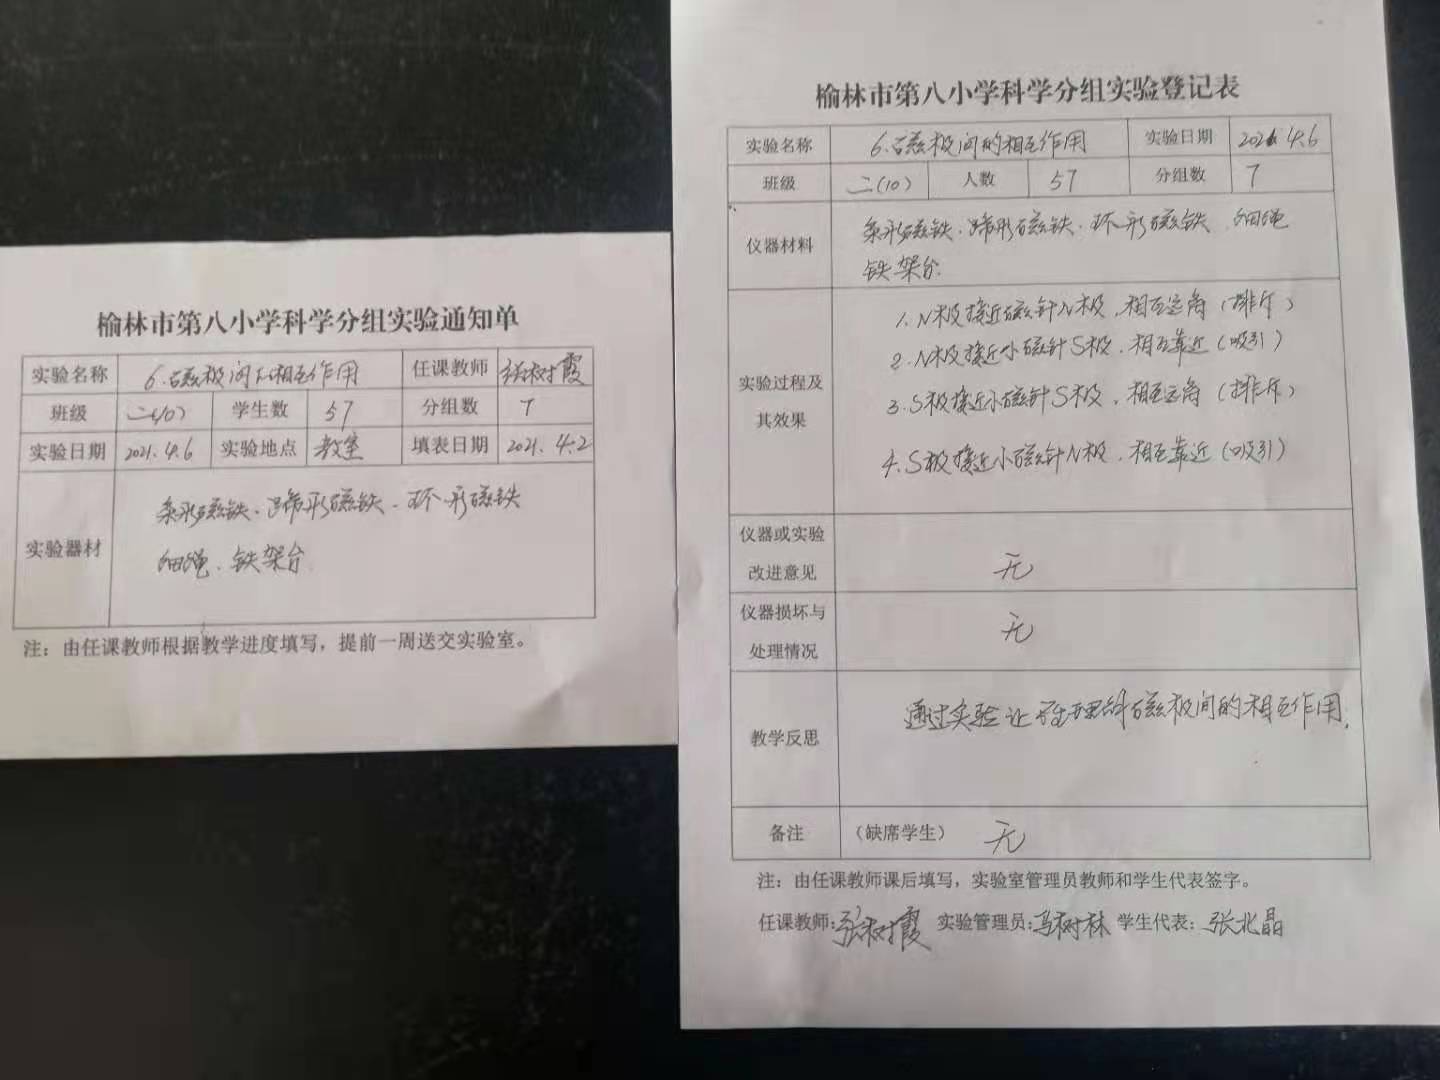 榆林市第八小学科学分组实验通知单
实验名称 6.磁极间的相互作用 任课教师 张树霞
班级 二(10) 学生数 57 分组数 7
实验日期 2021.4.6 实验地点 教室 填表日期 2021.4.2
实验器材
条形磁铁、蹄形磁铁、环形磁铁
细绳、铁架台
注：由任课教师根据教学进度填写，提前一周送交实验室。
榆林市第八小学科学分组实验登记表
实验名称 6.磁极间的相互作用 实验日期 2021.4.6
班级 二(10) 人数 57 分组数 7
仪器材料
条形磁铁、蹄形磁铁、环形磁铁、细绳
铁架台
实验过程及
其效果
1.N极接近磁针N极，相互远离（排斥）
2.N极接近小磁针S极，相互靠近（吸引）
3.S极接近小磁针S极，相互远离（排斥）
4.S极接近小磁针N极，相互靠近（吸引）
仪器或实验
改进意见
无
仪器损坏与
处理情况
无
教学反思
通过实验让学生理解磁极间的相互作用，
备注 （缺席学生） 无
注：由任课教师课后填写，实验室管理员教师和学生代表签字。
任课教师：张树霞 实验管理员：马树林 学生代表：张北晶